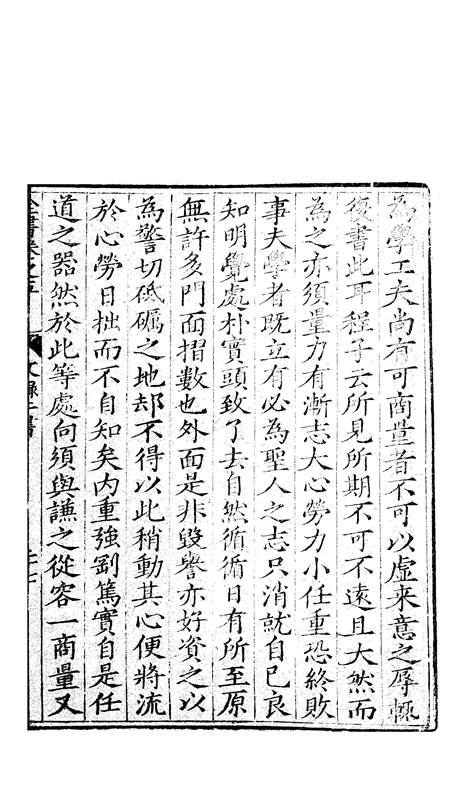 為學工夫尚有可商量者不可以虛来意之辱輙
復書此耳程子云所見所期不可不遠且大然而
為之亦須量力有漸志大心勞力小任重恐終敗
事夫學者既立有必為聖人之志只消就自己良
知明覺處朴實頭致了去自然循循日有所至原
無許多門面摺數也外面是非毀譽亦好資之以
為警切砥礪之地却不得以此稍動其心便將流
於心勞日拙而不自知矣内重強剛篤實自是任
道之器然於此等處尚須與謙之從容一商量又
全書卷之五 文錄二書